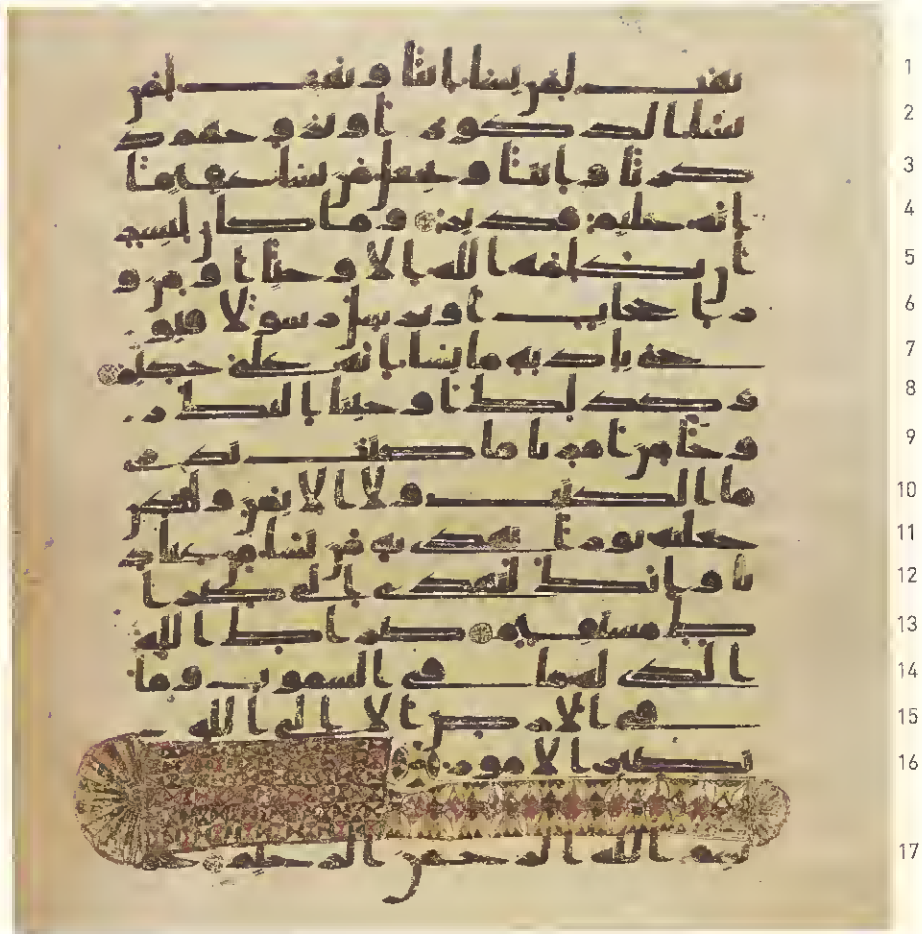 يهب لمن يشا انثا ويهب لمن
يشا الذكور او يزوجهم ذ
كرنا وانثا ويجعل من يشا عقيما
انه عليم قدير وما كان لبشر
ان يكلمه الله الا وحيا او من و
را حجاب او يرسل رسولا فيو
حي باذنه ما يشا انه علي حكيم
وكذلك اوحينا اليك ر
وحا من امرنا ما كنت تدري
ما الكتب ولا الايمن ولكن
جعلنه نورا نهدي به من نشا من عباد
نا وانك لتهدي الى صرا
ط مستقيم صراط الله
الذي له ما في السموت وما
في الارض الا الى الله
تصير الامور
بسم الله الرحمن الرحيم حم
1
2
3
4
5
6
7
8
9
10
11
12
13
14
15
16
17